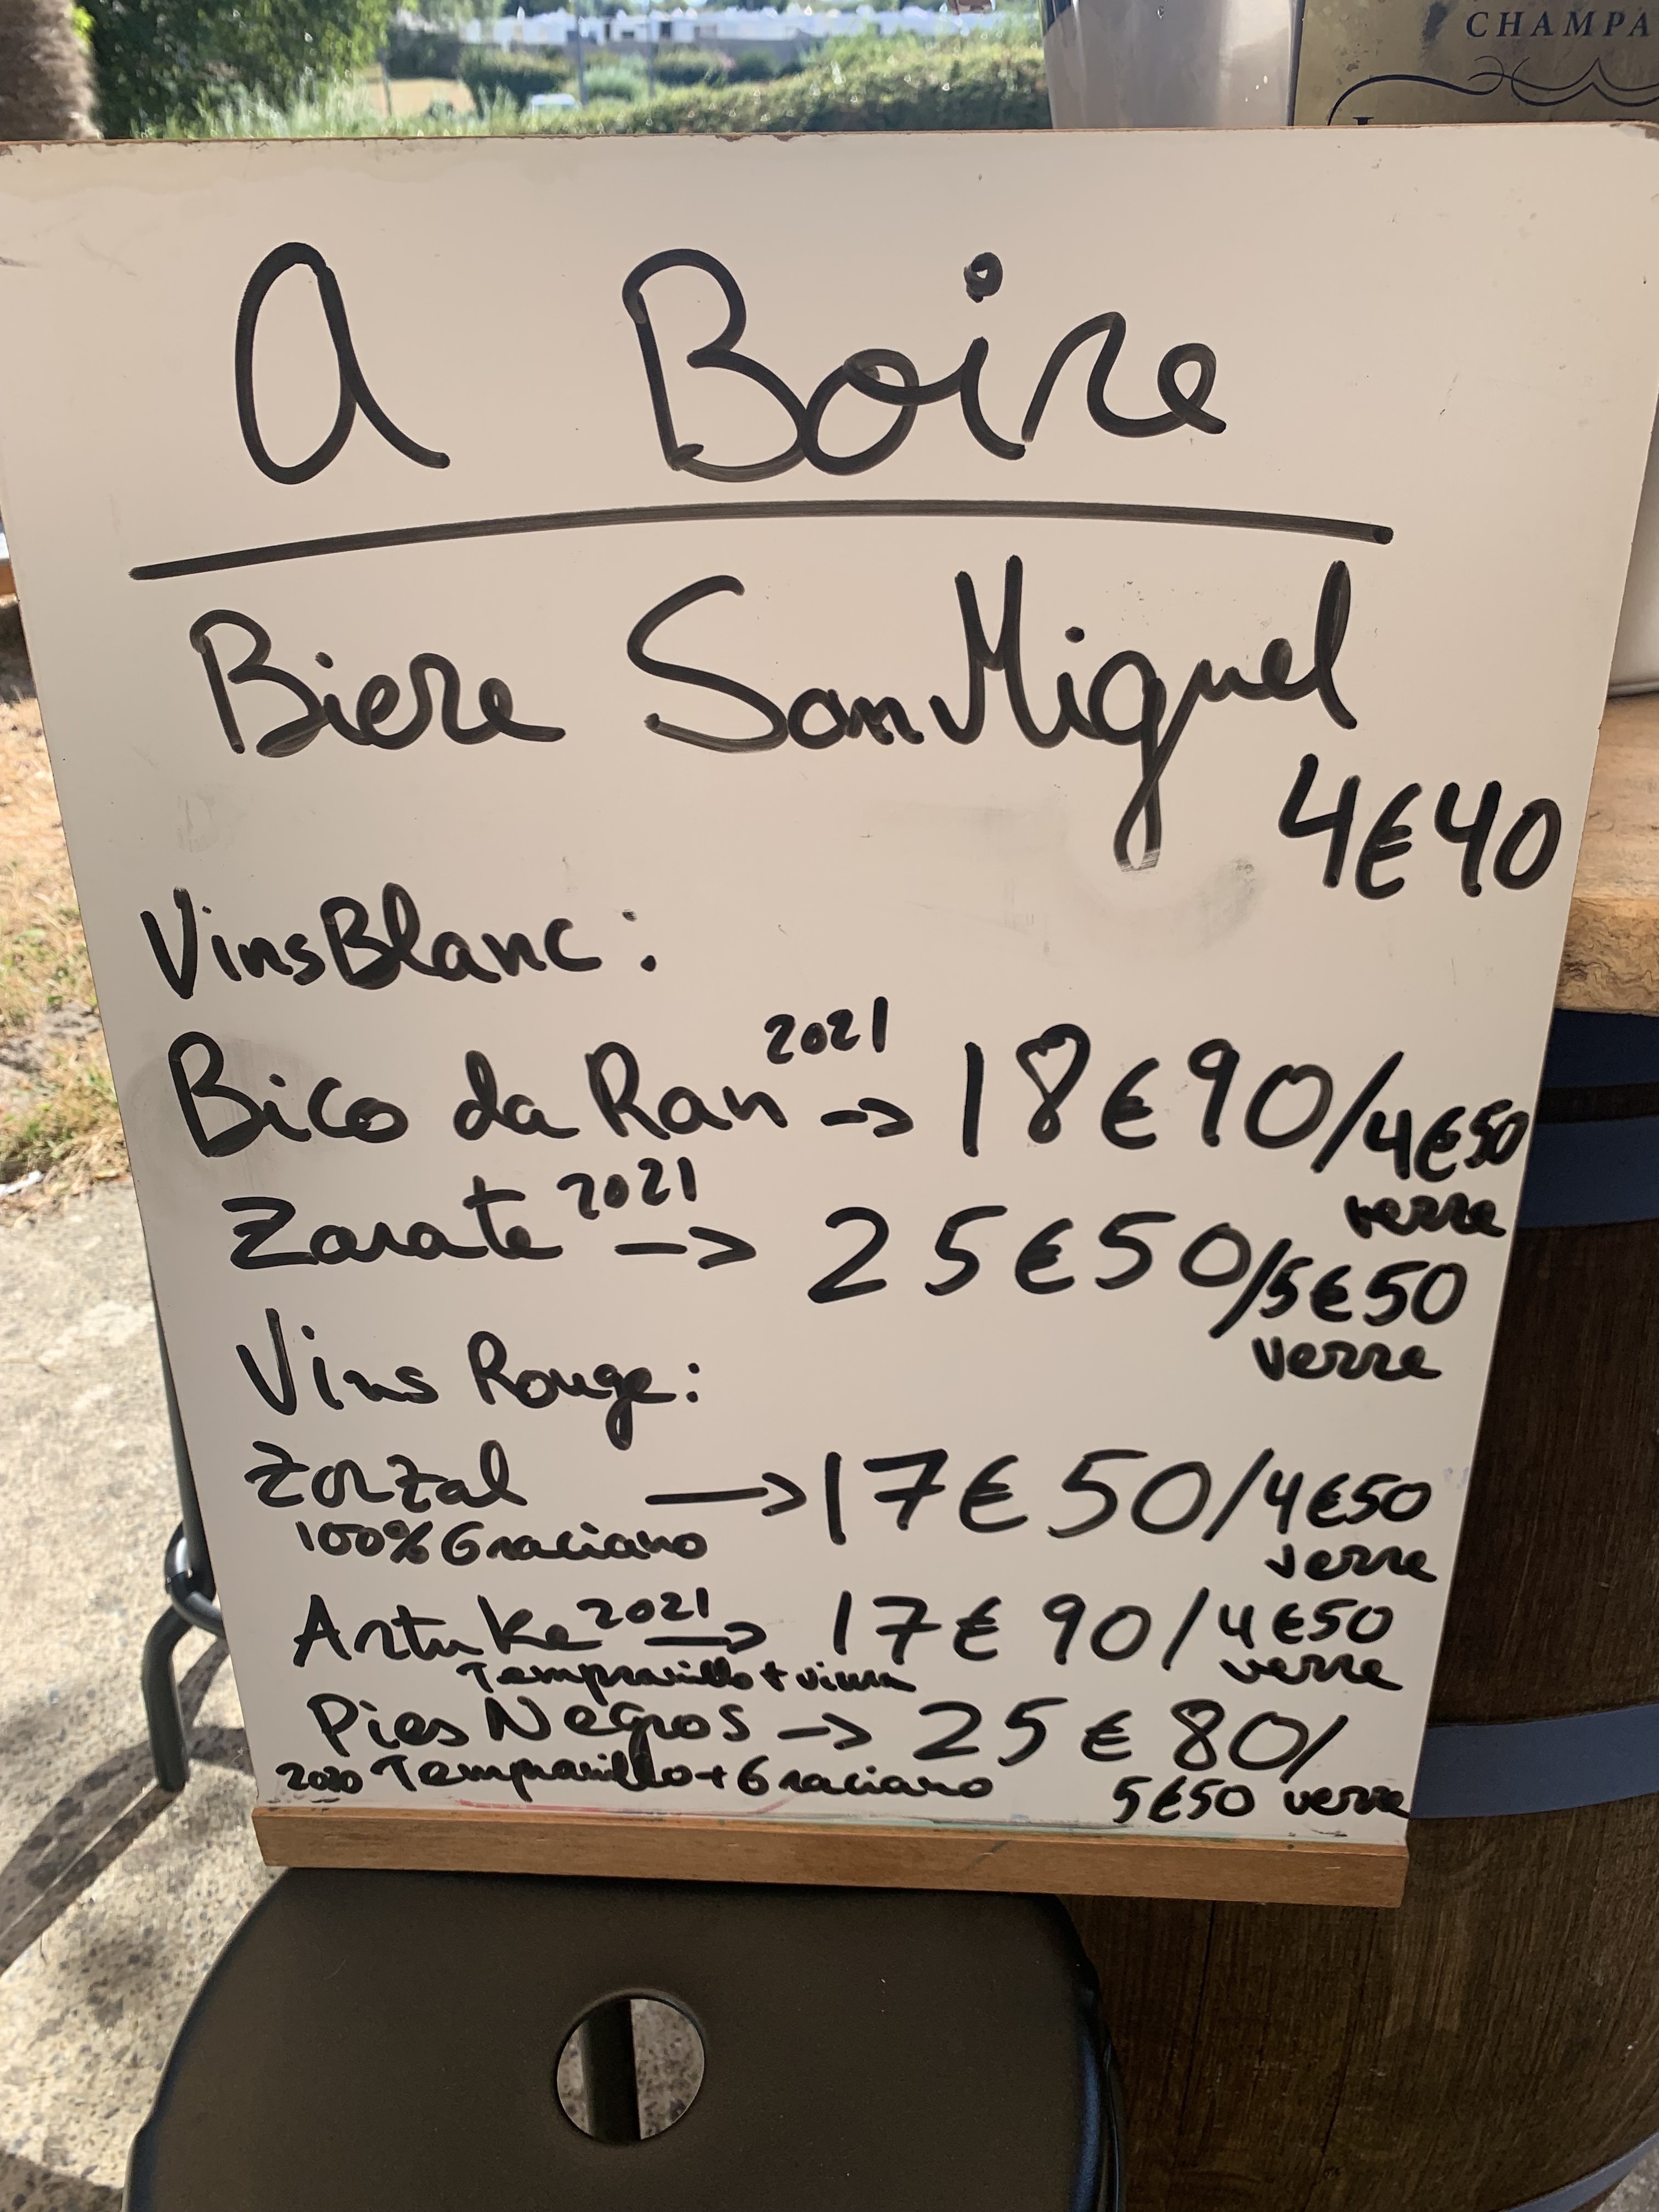 CHAMPA
A Boire
Biere San Miguel
4€40
Vins Blanc :
Bico da Ran 2021 -> 18€90/4€50
verre
Zarate 2021 -> 25€50/5€50
verre
Vins Rouge :
Zorzal -> 17€50/4€50
100% Graciano verre
Artuke 2021 -> 17€90/4€50
Tempranillo + viura verre
Pies Negros -> 25€80/
2020 Tempranillo + Graciano 5€50 verre